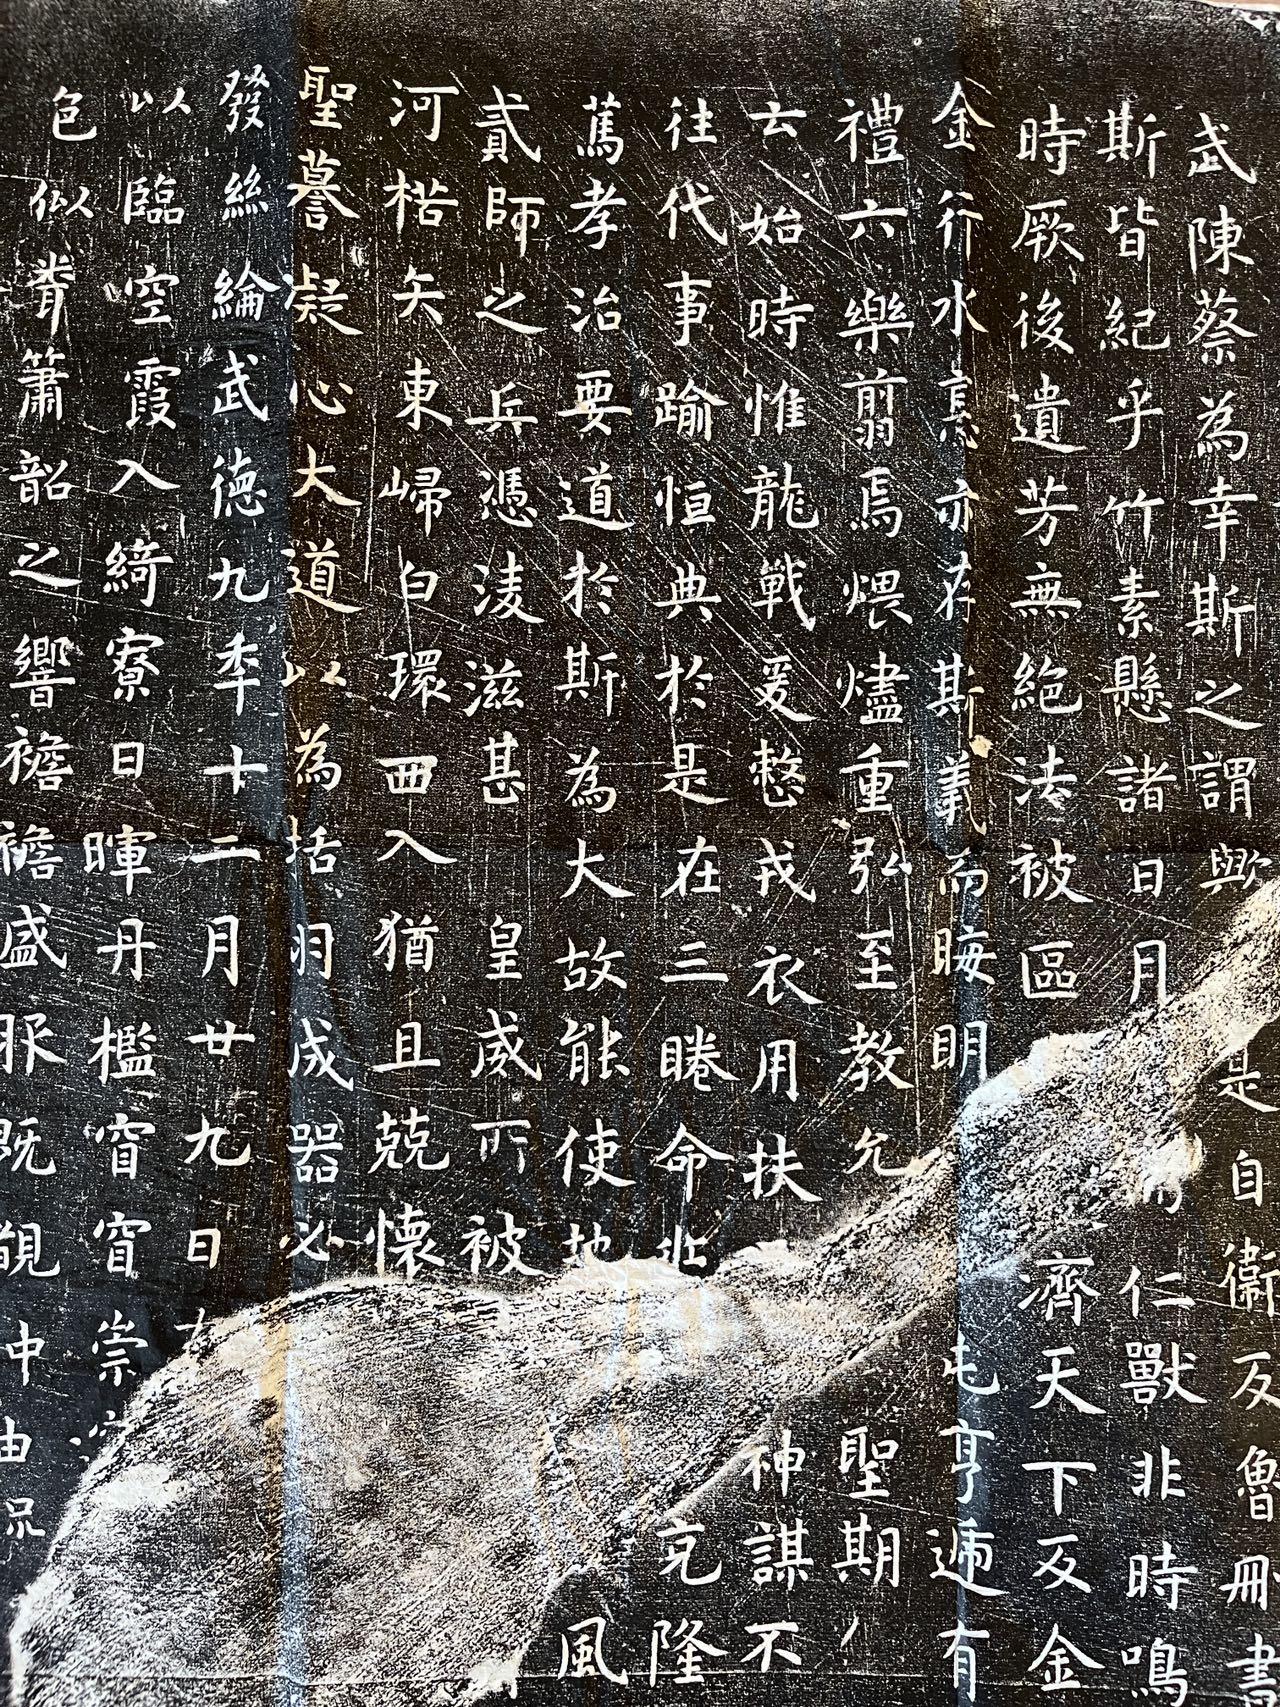 武陳蔡為幸斯之謂歟是自衛反魯刪書
斯皆紀乎竹素懸諸日月仁獸非時鳴
時厥後遺芳無絕法被區濟天下及金
金行水悳亦存斯義而晦明屯亨遞有
禮六樂翦焉煨燼重弘至教允聖期
云始時惟龍戰爰整戎衣用扶神謀不
往代事踰恒典於是在三睠命兆克隆
篤孝治要道於斯為大故能使地風
貳師之兵憑淩滋甚皇威所被
河楛矢東歸白環西入猶且兢懷
聖謩凝心大道以為括羽成器必
發絲綸武德九年十二月廿九日
以臨空霞入綺寮日暉丹檻窅窅崇
色似聆簫韶之響襜襜盛服既覩中由侃